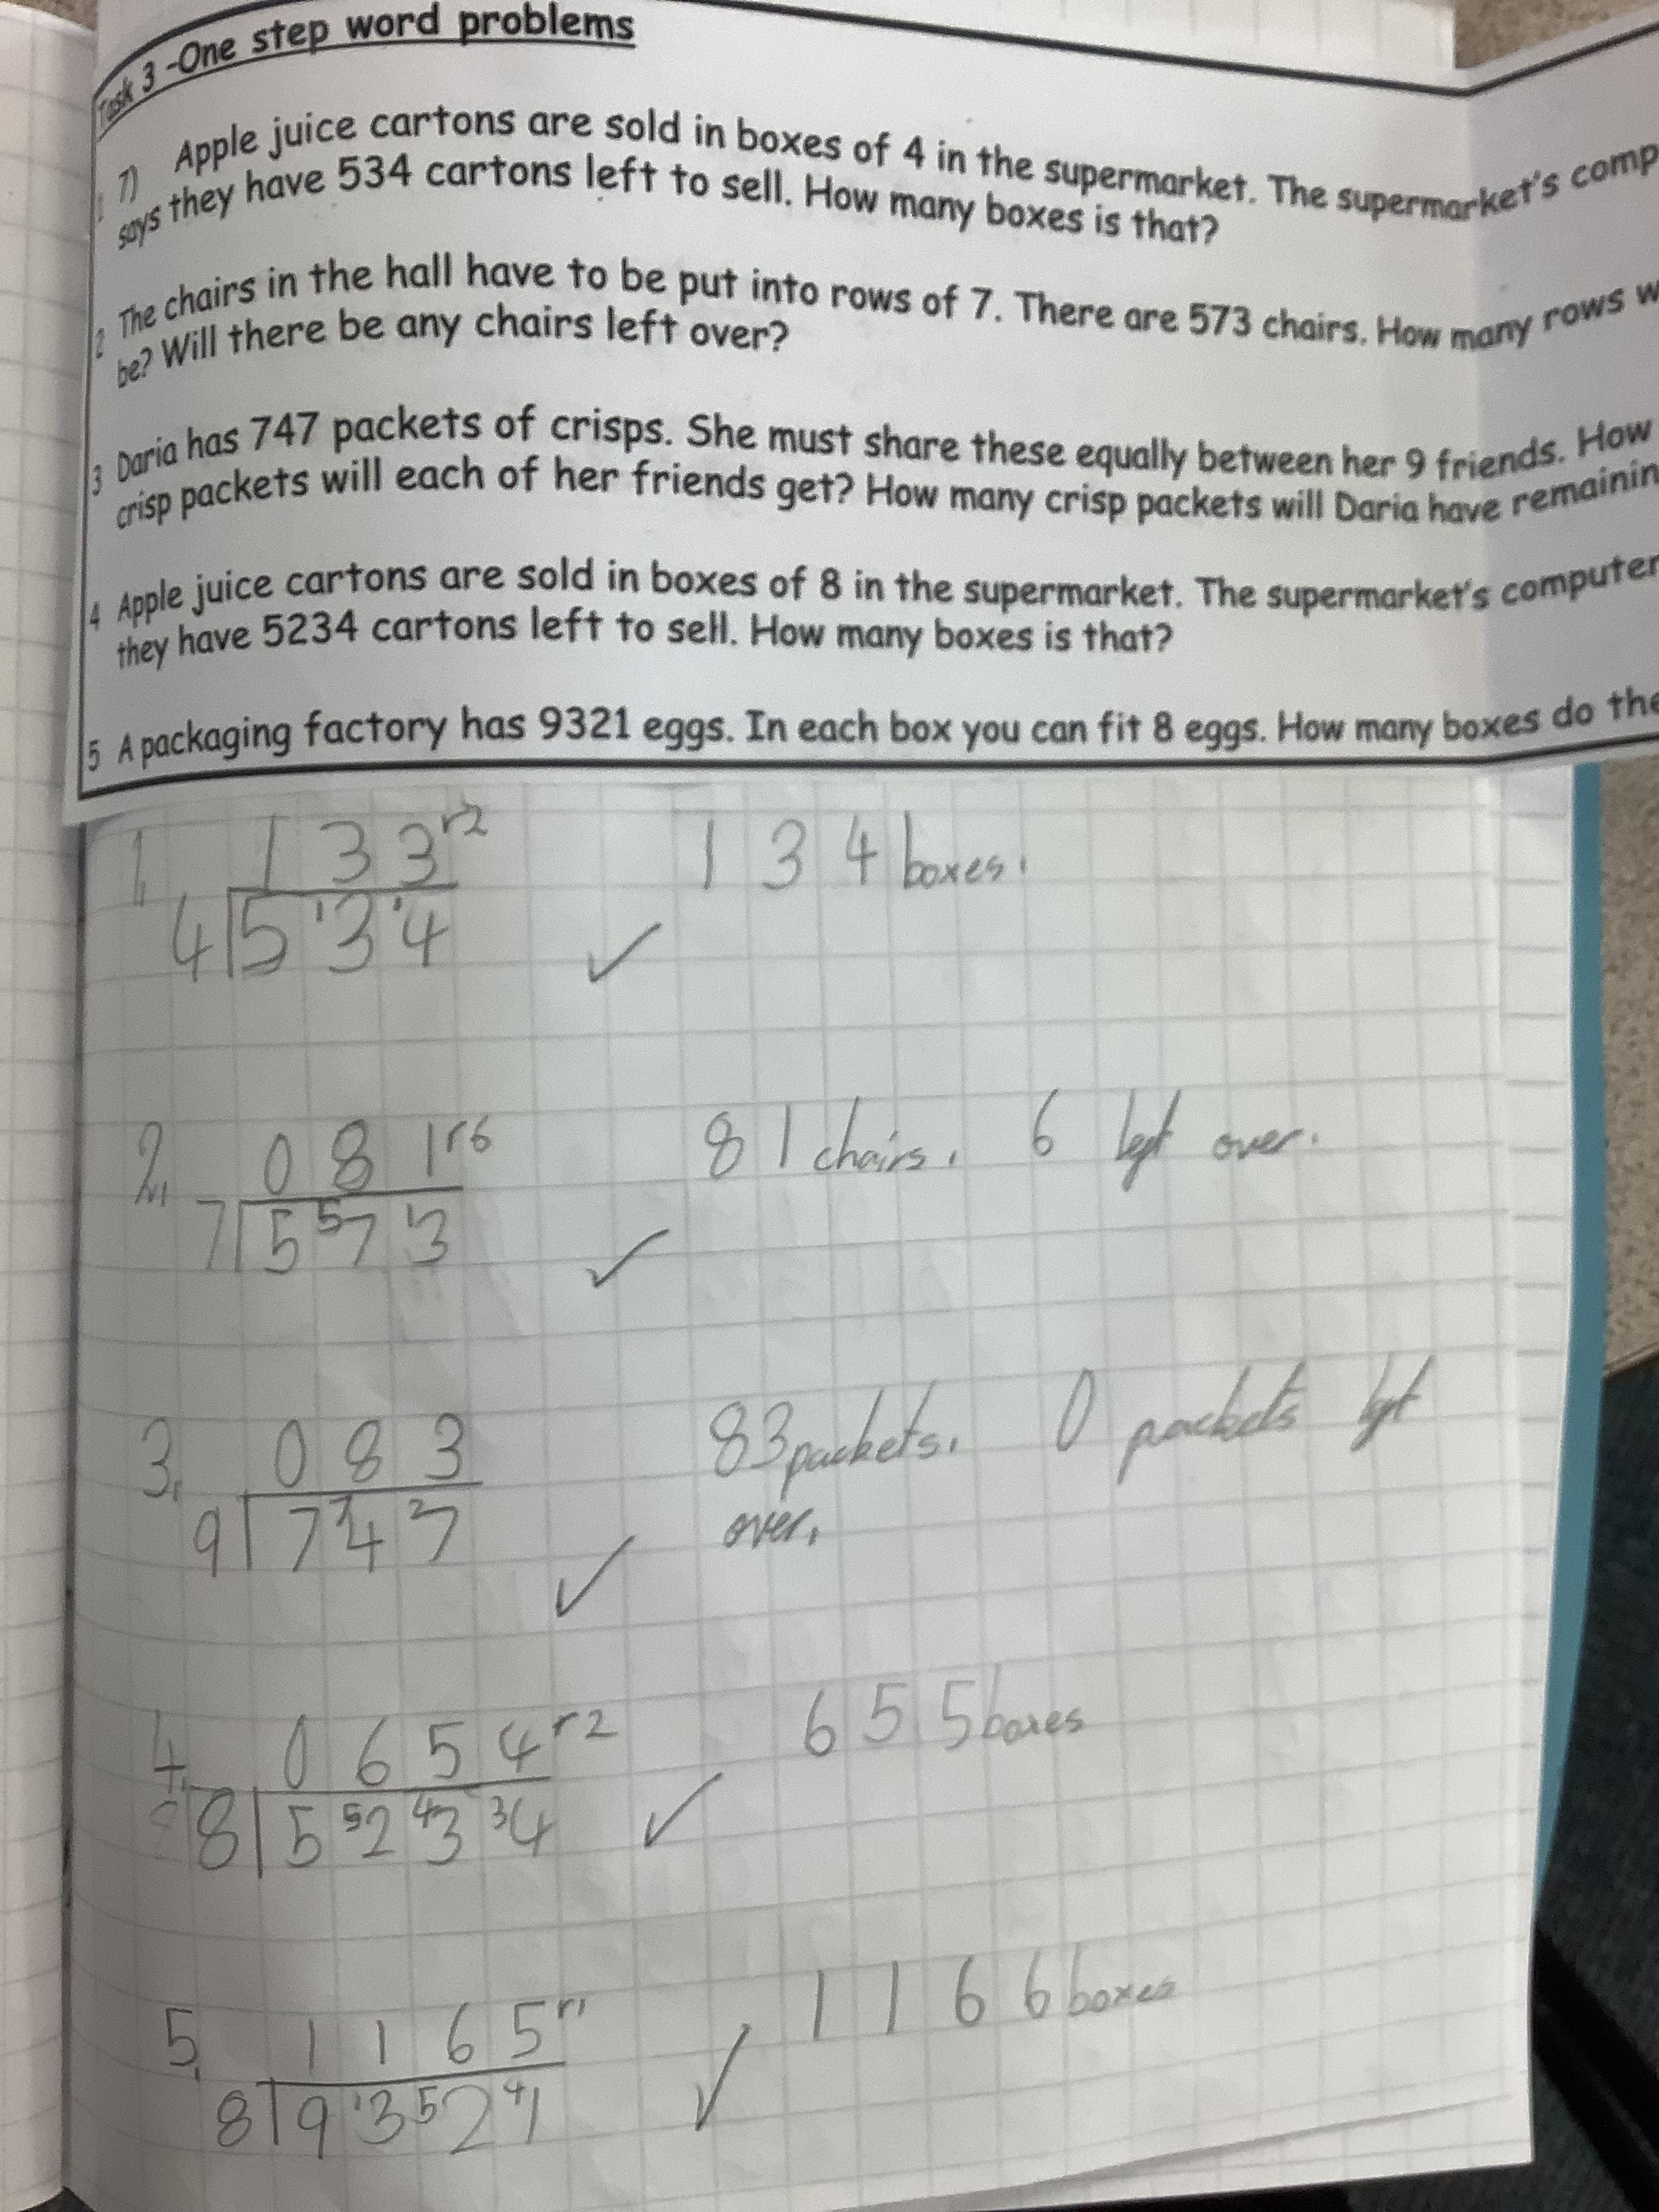 Task 3 -One step word problems
1 7) Apple juice cartons are sold in boxes of 4 in the supermarket. The supermarket's comp
says they have 534 cartons left to sell. How many boxes is that?
2 The chairs in the hall have to be put into rows of 7. There are 573 chairs. How many rows w
be? Will there be any chairs left over?
3 Daria has 747 packets of crisps. She must share these equally between her 9 friends. How
crisp packets will each of her friends get? How many crisp packets will Daria have remainin
4 Apple juice cartons are sold in boxes of 8 in the supermarket. The supermarket's computer
they have 5234 cartons left to sell. How many boxes is that?
5 A packaging factory has 9321 eggs. In each box you can fit 8 eggs. How many boxes do the
1. 1 3 3 r2 1 3 4 boxes.
4 5 1 3 1 4
2. 0 8 1 r6 8 1 chairs. 6 left over.
7 5 5 7 1 3
3. 0 8 3 83 packets. 0 packets left
9 7 7 4 2 7 over.
4. 0 6 5 4 r2 6 5 5 boxes
8 5 5 2 4 3 3 4
5. 1 1 6 5 r1 1 1 6 6 boxes
8 9 1 3 5 2 4 1